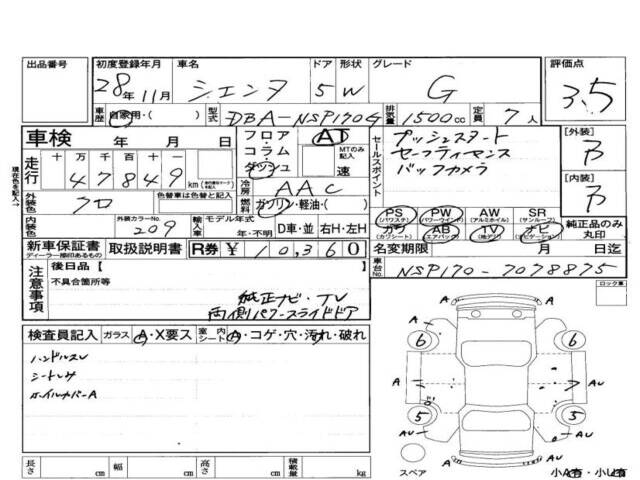 出品番号 初度登録年月 車名 ドア 形状 グレード 評価点
28年11月 シエンタ 5 W G 3.5
車歴 自家用・( ) 型式 DBA-NSP170G 排気量 1500cc 定員 7人
車検 年 月 日
フロア・コラム・ダッシュ AT MTのみ記入 速
セールスポイント
プッシュスタート
セーフティセンス
バックカメラ
[外装] B
[内装] B
現在色を記入→
走行 十万千百十 47849 km
冷房 AAC
外装色 クロ 色替車は色替と記入
燃料 ガソリン・軽油・( )
PS (パワステ) PW (パワーウインド) AW (アルミホイル) SR (サンルーフ)
カワ (カワシート) AB (エアバック) TV (地デジ) ナビ (ナビゲーション)
純正品のみ丸印
内装色 外装カラーNo. 209 輸入車 モデル年式 年・不明 D車・並 右H・左H
新車保証書 ディーラー捺印あるもの 取扱説明書 R券 ¥10,360
名変期限 月 日迄
車台No. NSP170-7078875
注意事項
後日品【 】
不具合箇所等
純正ナビ・TV
両側パワースライドドア
ロック車
検査員記入 ガラス A・X要ス 室内シート A・コゲ・穴・汚れ・破れ
ハンドルスレ
シートシミ
ホイルカバーA
A
6 6
A A AU
5 5
AU AU
AU AU
スペア
小A有・小U有
長さ cm 幅 cm 高さ cm 積載量 kg